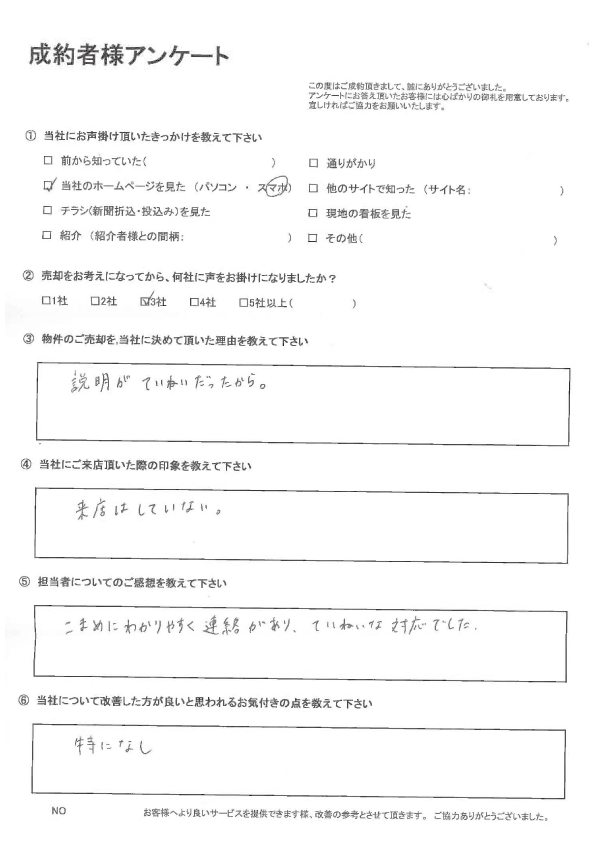 成約者様アンケート
この度はご成約頂きまして、誠にありがとうございました。
アンケートにお答え頂いたお客様には心ばかりの御礼を用意しております。
宜しければご協力をお願いいたします。
① 当社にお声掛け頂いたきっかけを教えて下さい
□ 前から知っていた( )　□ 通りがかり
☑ 当社のホームページを見た (パソコン ・ スマホ)　□ 他のサイトで知った (サイト名: )
□ チラシ(新聞折込・投込み)を見た　□ 現地の看板を見た
□ 紹介 (紹介者様との間柄: )　□ その他( )
② 売却をお考えになってから、何社に声をお掛けになりましたか?
□1社　□2社　☑3社　□4社　□5社以上( )
③ 物件のご売却を,当社に決めて頂いた理由を教えて下さい
説明がていねいだったから。
④ 当社にご来店頂いた際の印象を教えて下さい
来店はしていない。
⑤ 担当者についてのご感想を教えて下さい
こまめにわかりやすく連絡があり、ていねいな対応でした.
⑥ 当社について改善した方が良いと思われるお気付きの点を教えて下さい
特になし
NO　お客様へより良いサービスを提供できます様、改善の参考とさせて頂きます。 ご協力ありがとうございました。